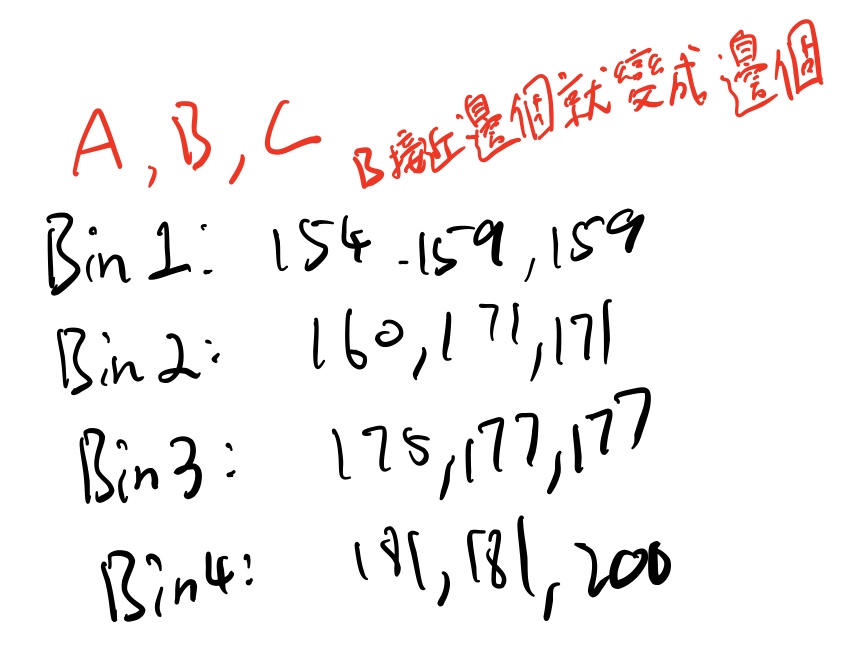 A, B, C B接近邊個就變成邊個
Bin 1: 154, 159, 159
Bin 2: 160, 171, 171
Bin 3: 175, 177, 177
Bin 4: 181, 181, 200